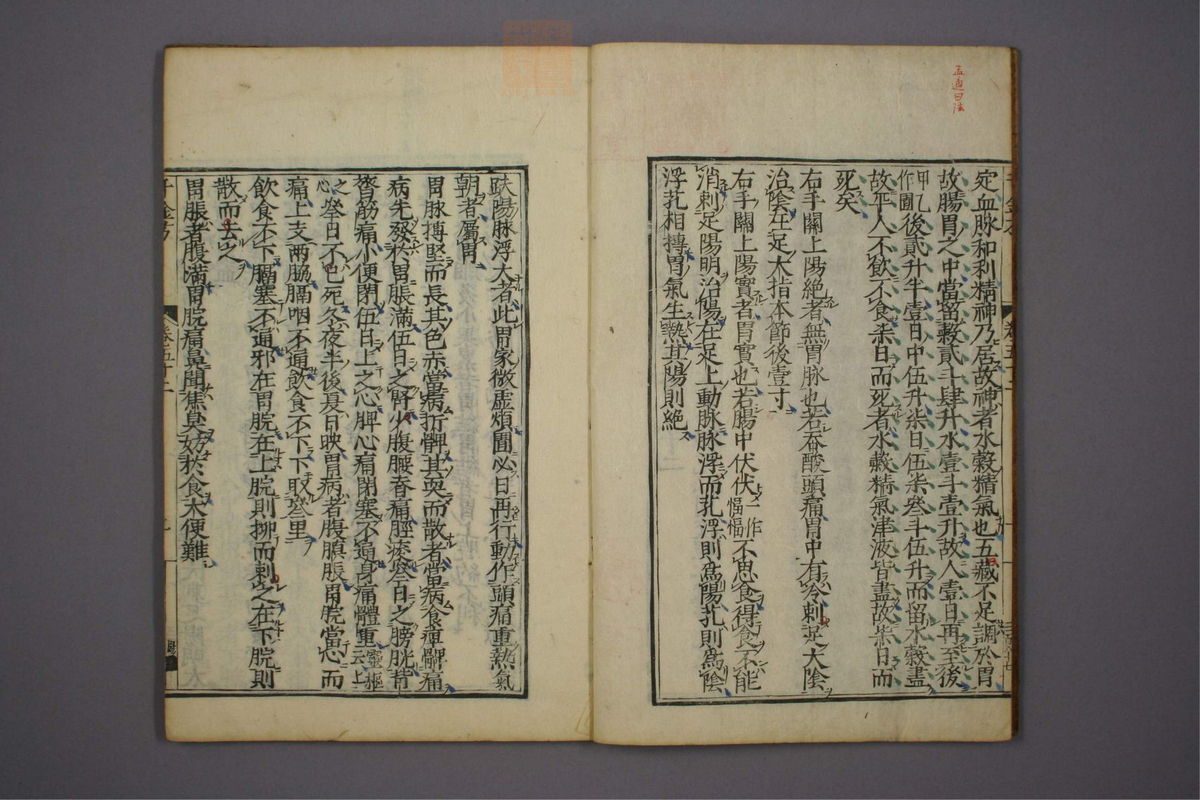 定血脉和利精神乃居故神者水穀精氣也五藏不足調於胃
故腸胃之中當留穀貳斗肆升水壹斗壹升故人壹日再至後
甲乙作圊後貳升半壹日中伍升柒日伍柒叁斗伍升而留水穀盡
故平人不飲不食柒日而死者水穀精氣津液皆盡故柒日而
死矣
右手關上陽絶者無胃脉也若吞酸頭痛胃中有冷刺足太陰
治陰在足大指本節後壹寸
右手關上陽實者胃實也若腸中伏伏一作愊愊不思食得食不能
消刺足陽明治陽在足上動脉脉浮而芤浮則爲陽芤則爲陰
浮芤相搏胃氣生熱其陽則絶
趺陽脉浮大者此胃家微虛煩圊必日再行動作頭痛重熱氣
朝者屬胃
胃脉搏堅而長其色赤當病折髀其耎而散者當病食痺髀痛
病先發於胃脹滿伍日之腎少腹腰脊痛脛痠叁日之膀胱背
膂筋痛小便閉伍日上之心脾心痛閉塞不通身痛體重靈樞云上之心
叁日不已死冬夜半後夏日昳胃病者腹䐜脹胃脘當心而
痛上支兩脇膈咽不通飲食不下下取叁里
飲食不下膈塞不通邪在胃脘在上脘則抑而刺之在下脘則
散而去之
胃脹者腹滿胃脘痛鼻聞焦臭妨於食大便難
千金方
卷五十二
卷五十二